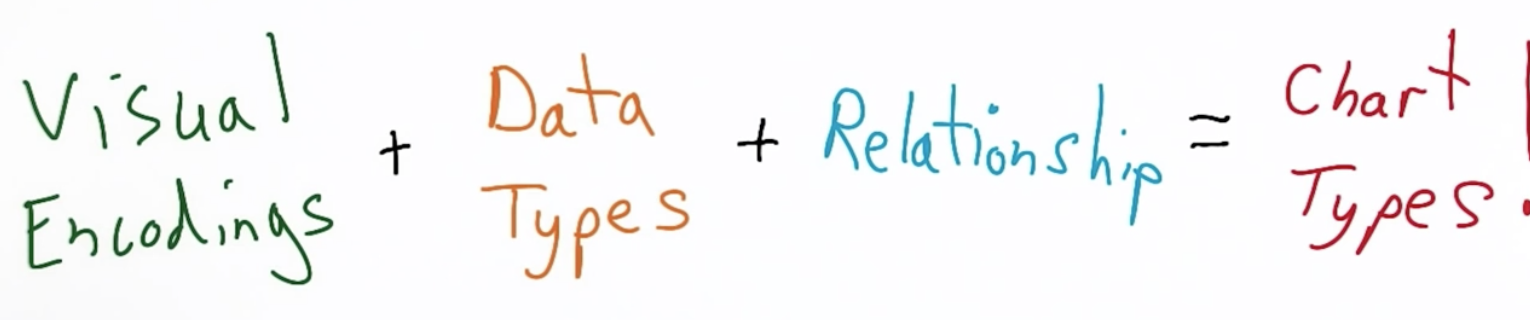 Visual Encodings + Data Types + Relationship = Chart Types!